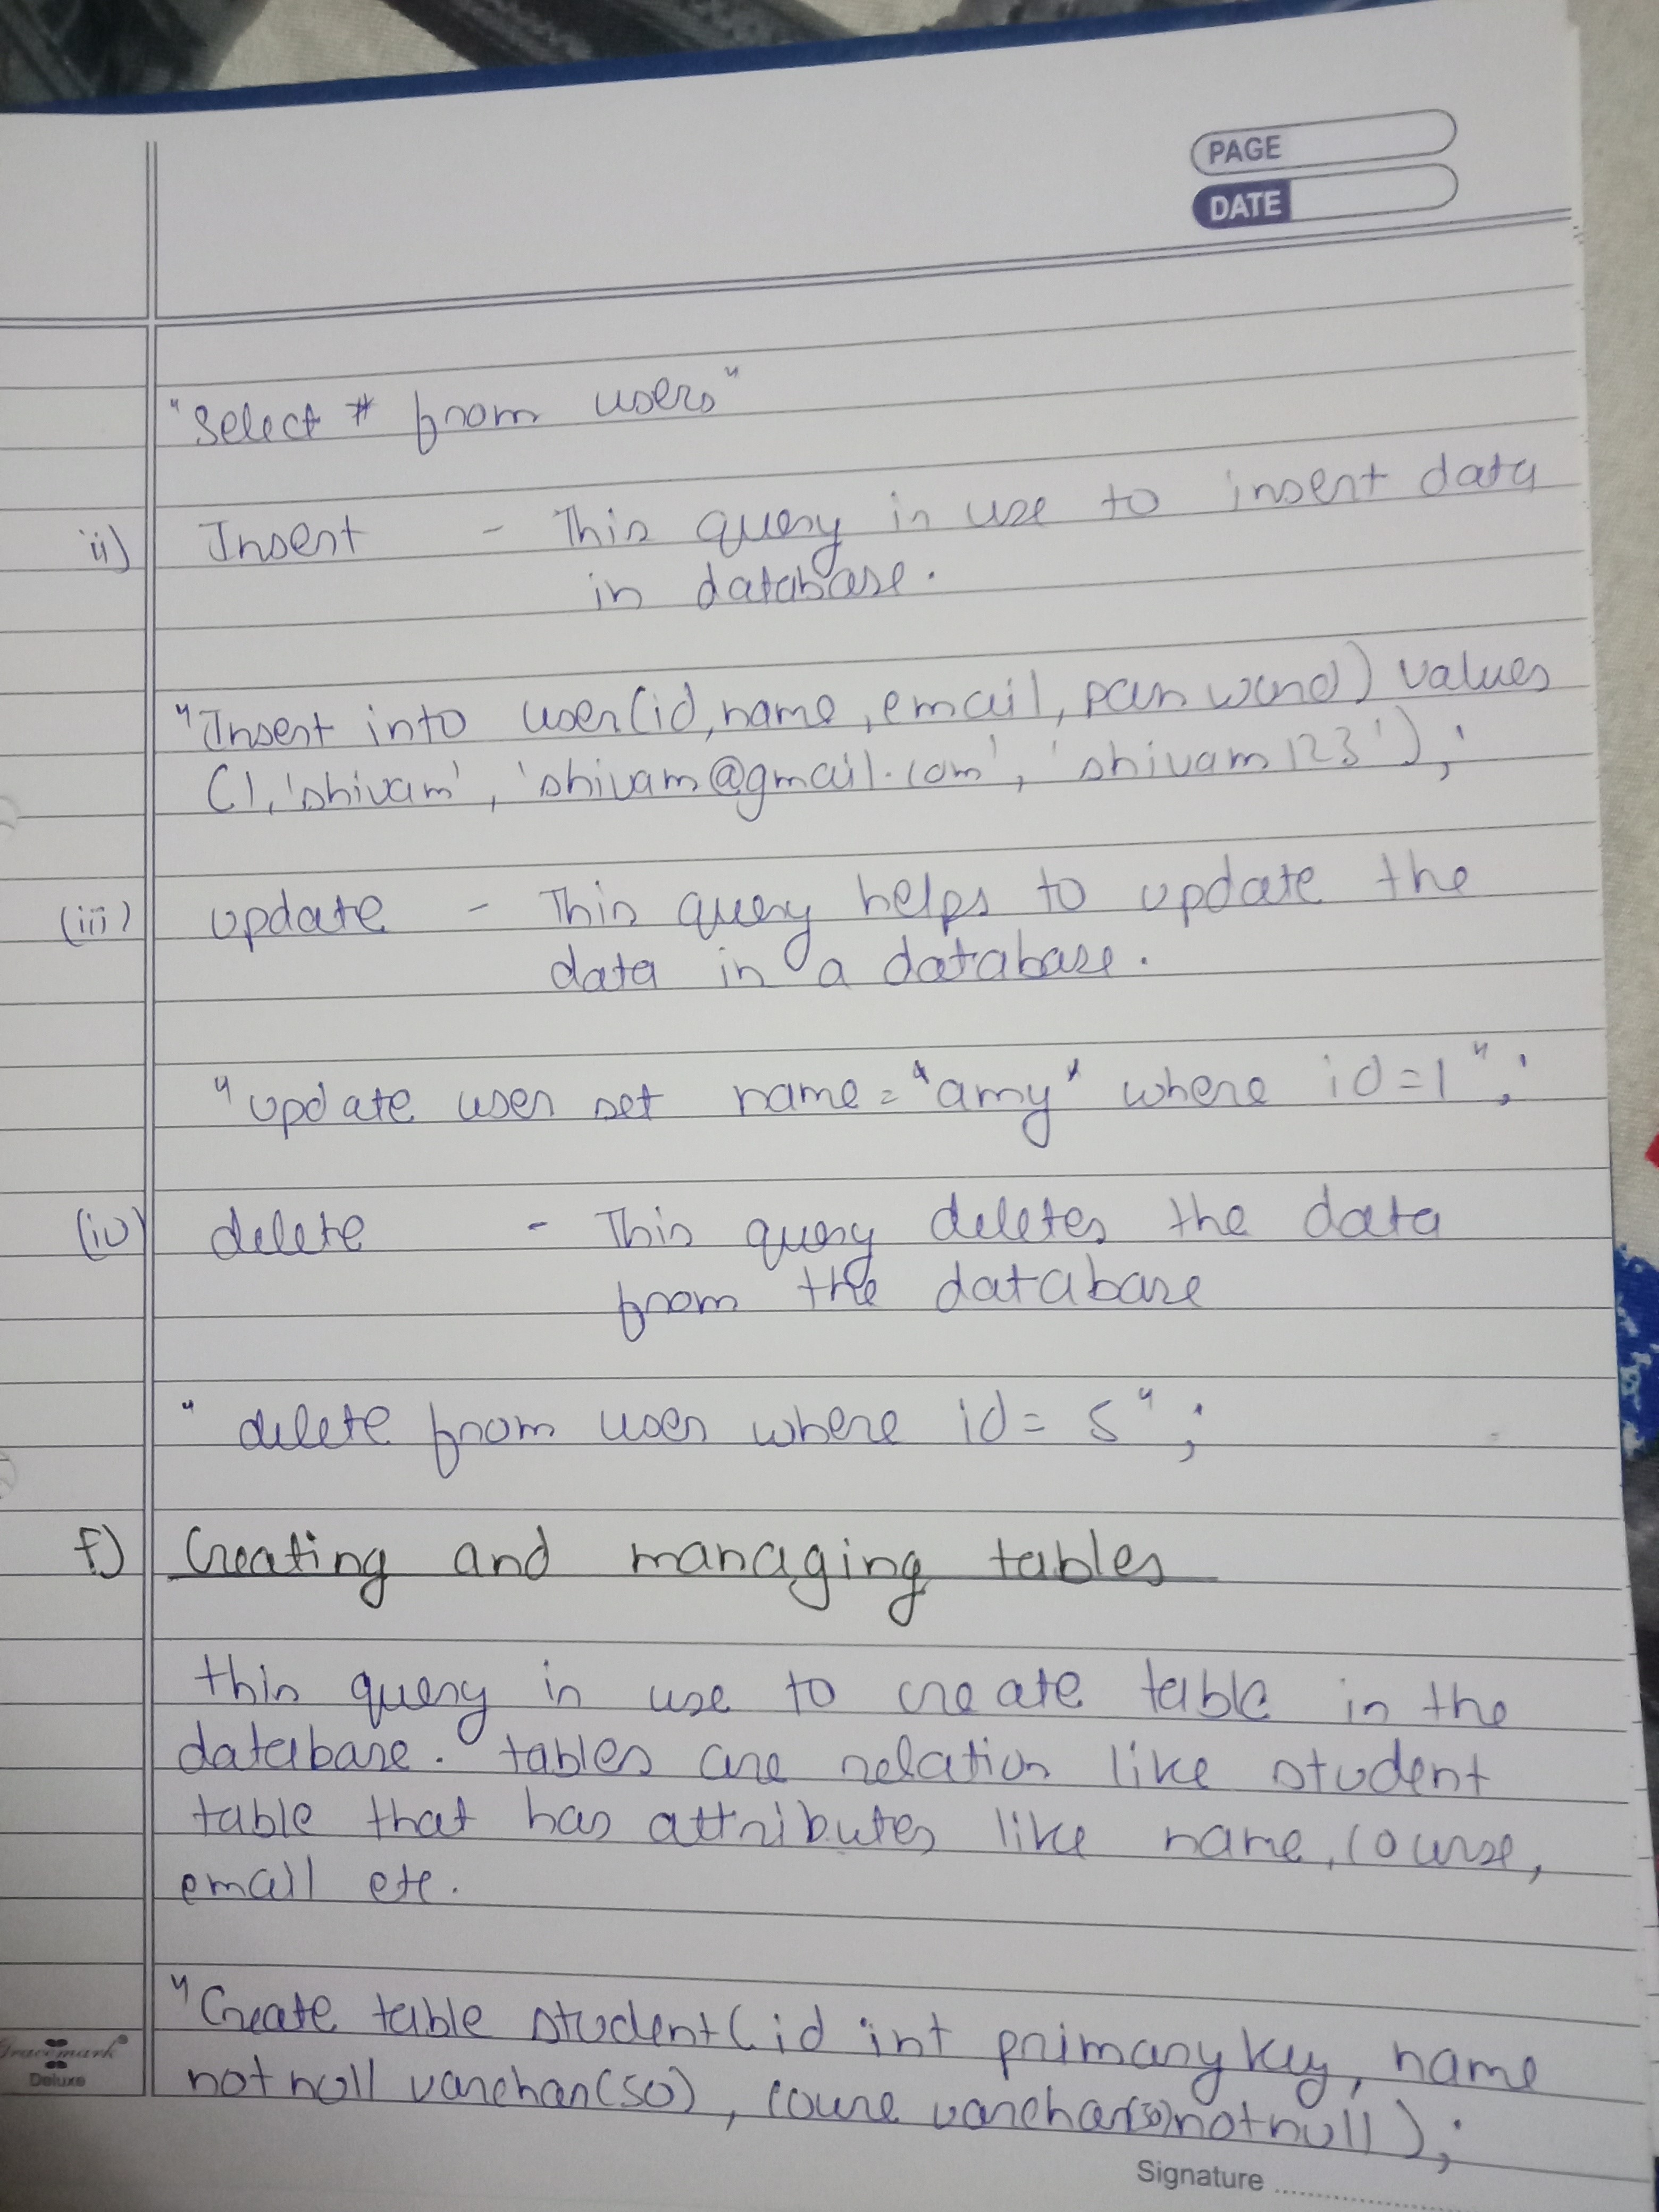 PAGE
DATE
"Select * from users"
ii) Insert - This query is use to insert data
in database.
"Insert into user(id, name, email, password) values
(1, 'shivam', 'shivam@gmail.com', 'shivam123');
(iii) update - This query helps to update the
data in a database.
"update user set name = "amy" where id=1";
(iv) delete - This query deletes the data
from the database
"delete from user where id = 5";
f) Creating and managing tables
this query is use to create table in the
database. tables are relation like student
table that has attributes like name, course,
email etc.
"Create table student(id int primary key, name
not null varchar(50), course varchar(50) not null);
Gracemark
Deluxe
Signature ..................